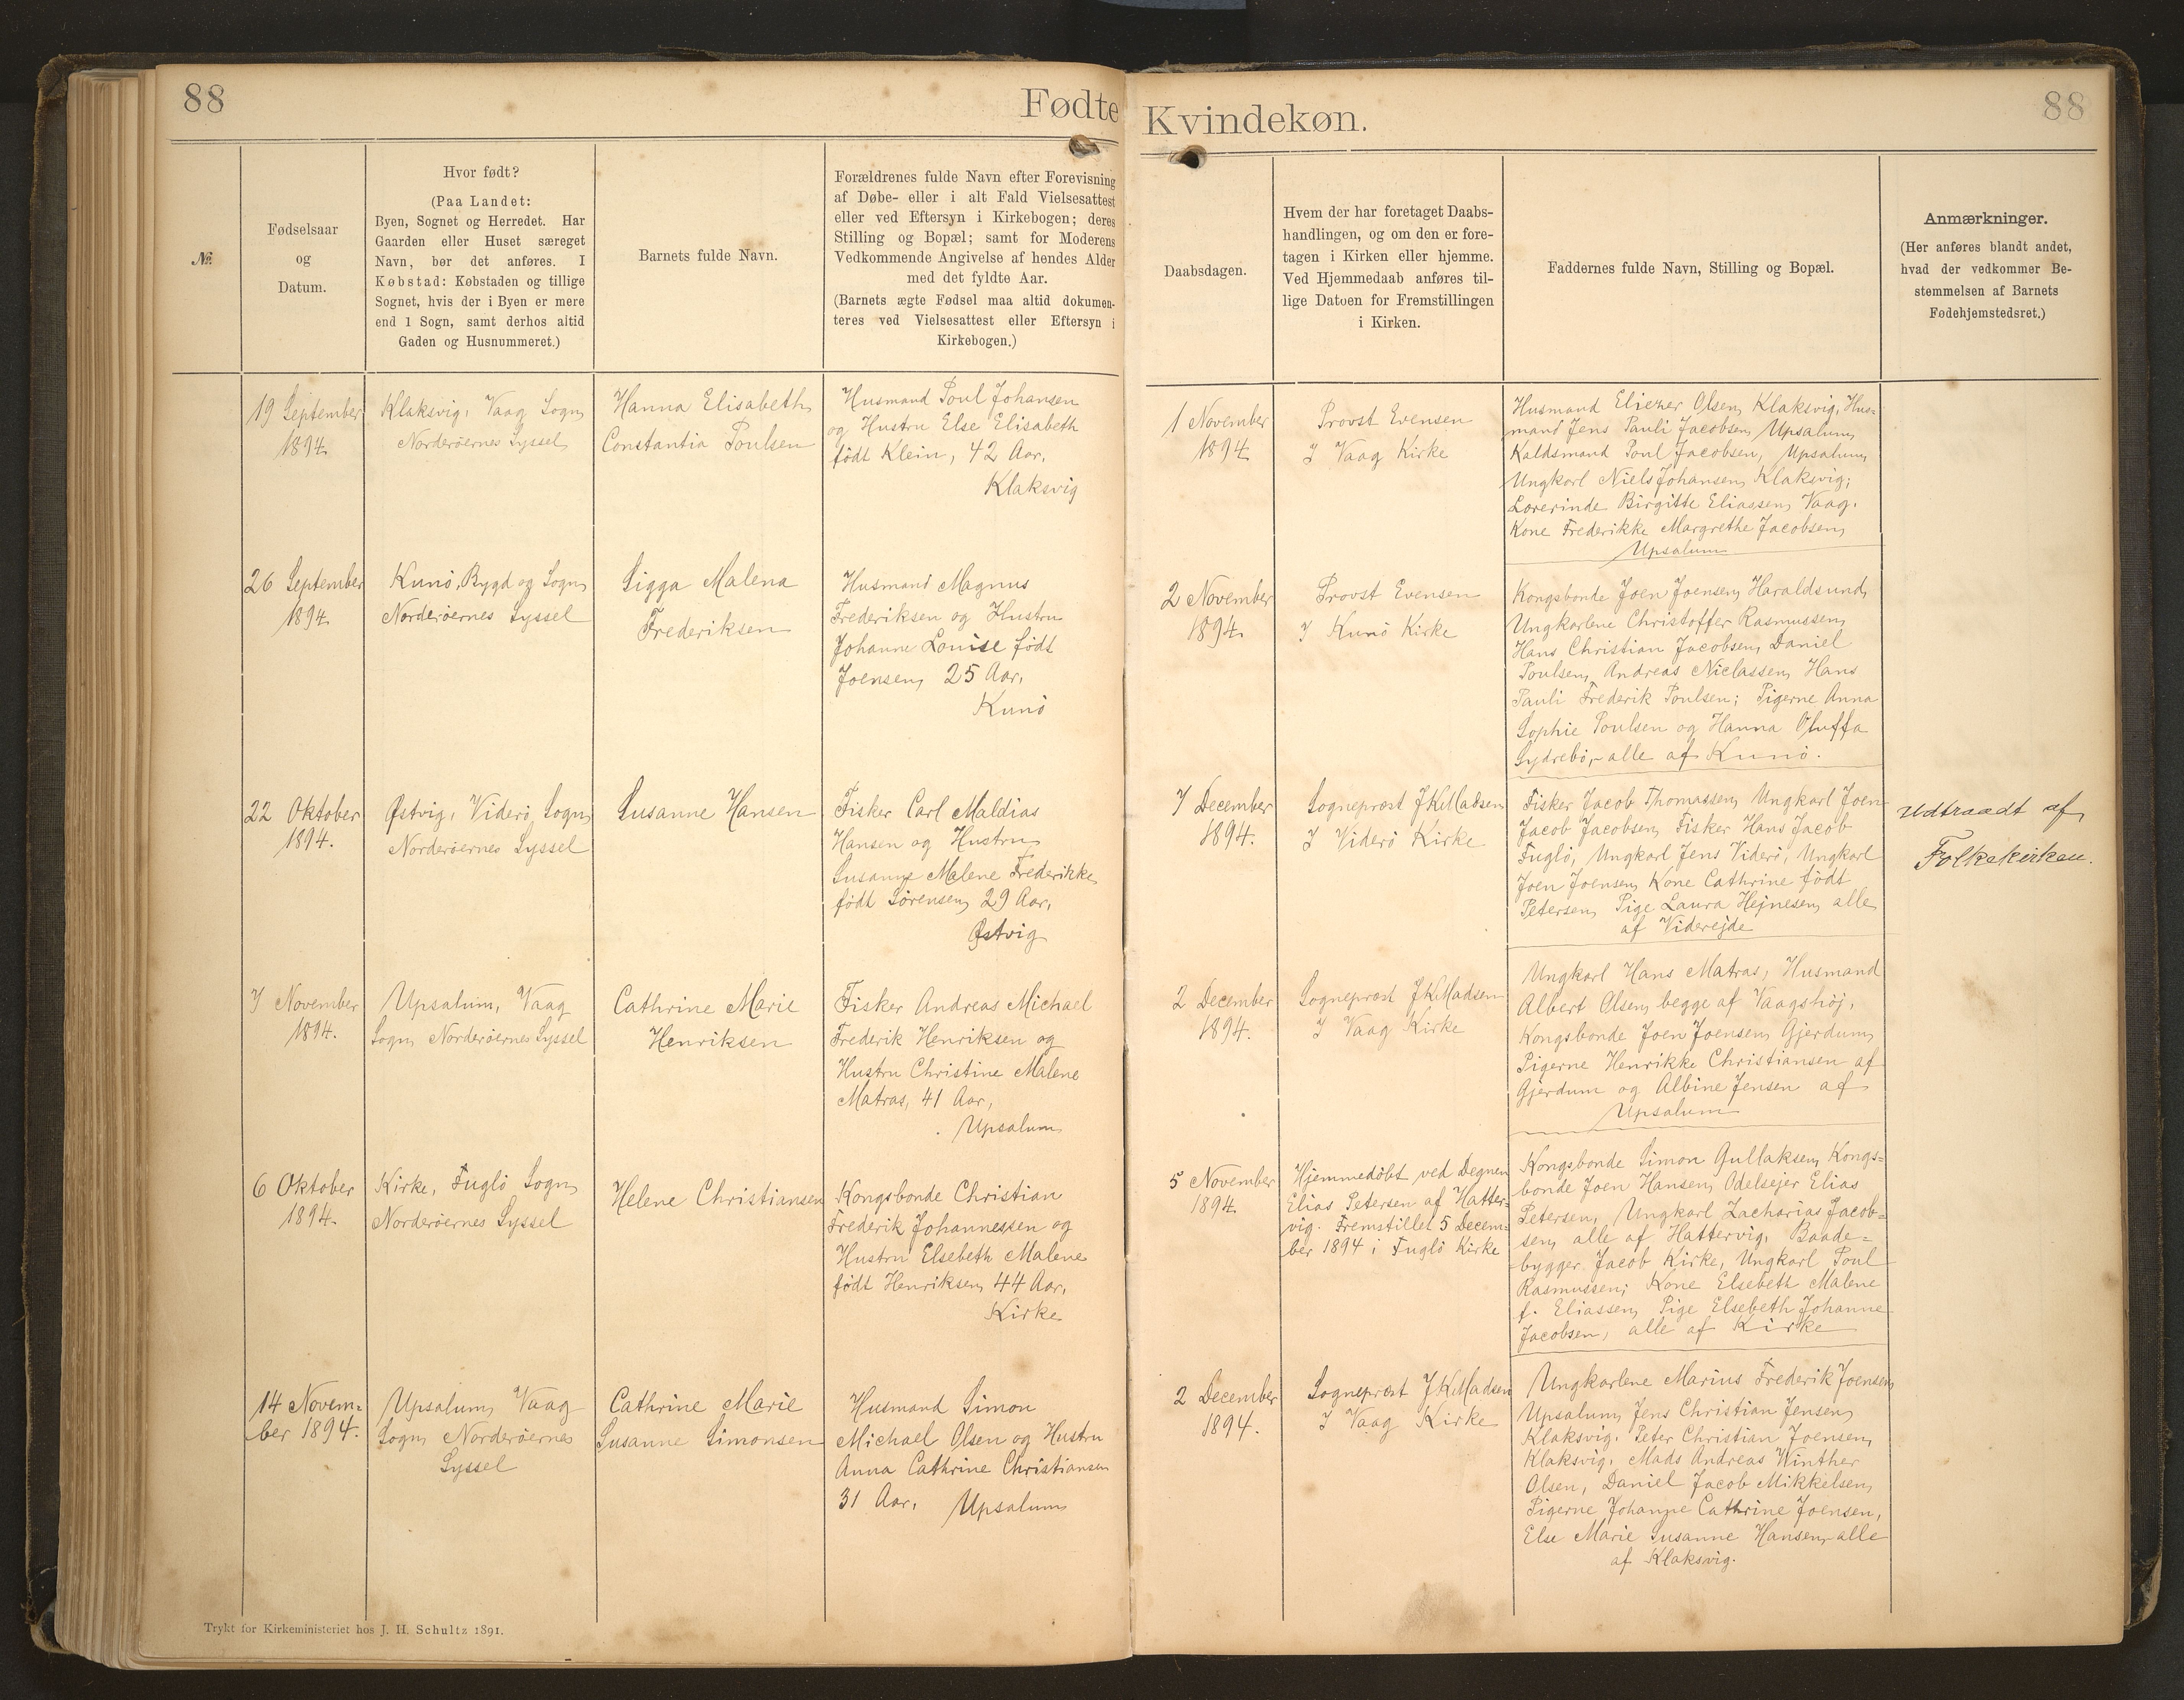 88
Fødte
Kvindekøn.
88
№
Fødselsaar
og
Datum.
Hvor født?
(Paa Landet:
Byen, Sognet og Herredet. Har
Gaarden eller Huset særeget
Navn, bør det anføres. I
Købstad: Købstaden og tillige
Sognet, hvis der i Byen er mere
end 1 Sogn, samt derhos altid
Gaden og Husnummeret.)
Barnets fulde Navn.
Forældrenes fulde Navn efter Forevisning
af Døbe- eller i alt Fald Vielsesattest
eller ved Eftersyn i Kirkebogen; deres
Stilling og Bopæl; samt for Moderens
Vedkommende Angivelse af hendes Alder
med det fyldte Aar.
(Barnets ægte Fødsel maa altid dokumen-
teres ved Vielsesattest eller Eftersyn i
Kirkebogen.)
Daabsdagen.
Hvem der har foretaget Daabs-
handlingen, og om den er fore-
tagen i Kirken eller hjemme.
Ved Hjemmedaab anføres til-
lige Datoen for Fremstillingen
i Kirken.
Faddernes fulde Navn, Stilling og Bopæl.
Anmærkninger.
(Her anføres blandt andet,
hvad der vedkommer Be-
stemmelsen af Barnets
Fødehjemstedsret.)
19 September
1894
Klaksvig, Vaag Sogn
Norderöernes Syssel
Hanna Elisabeth
Constantia Poulsen
Husmand Poul Johansen
og Hustru Else Elisabeth
födt Klein, 42 Aar,
Klaksvig
1 November
1894
Provst Evensen
I Vaag Kirke
Husmand Eliezer Olsen, Klaksvig, Hus=
mand Jens Pauli Jacobsen, Upsalum,
Kaldsmand Poul Jacobsen, Upsalum,
Ungkarl Niels Johansen, Klaksvig;
Lærerinde Birgitte Eliassen, Vaag.
Kone Frederikke Margrethe Jacobsen,
Upsalum
26 September
1894
Kunö, Bygd og Sogn,
Norderöernes Syssel
Sigga Malena
Frederiksen
Husmand Magnus
Frederiksen og Hustru
Johanne Louise födt
Joensen, 25 Aar,
Kunö
2 November
1894
Provst Evensen
I Kunö Kirke
Kongsbonde Joen Joensen, Haraldsund,
Ungkarlene Christoffer Rasmussen,
Hans Christian Jacobsen, Daniel
Poulsen, Andreas Niclassen, Hans
Pauli Frederik Poulsen; Pigerne Anna
Sophie Poulsen og Hanna Oluffa
Sydrebö, alle af Kunö.
22 Oktober
1894.
Østvig, Viderö Sogn,
Norderöernes Syssel
Susanne Hansen
Fisker Carl Maldias
Hansen og Hustru
Susanne Malene Frederikke
födt Sörensen, 29 Aar,
Østvig
7 December
1894.
Sognepræst J K Madsen
I Viderö Kirke
Fisker Jacob Thomassen, Ungkarl Joen
Jacob Jacobsen, Fisker Hans Jacob
Fuglö, Ungkarl Jens Viderö, Ungkarl
Joen Joensen, Kone Cathrine födt
Petersen, Pige Laura Hejnesen, alle
af Viderejde
Udtraadt af
Folkekirken.
7 November
1894.
Upsalum, Vaag
Sogn, Norderöernes Syssel
Cathrine Marie
Henriksen
Fisker Andreas Michael
Frederik Henriksen og
Hustru Christine Malene
Matras, 41 Aar,
Upsalum
2 December
1894.
Sognepræst J K Madsen
I Vaag Kirke
Ungkarl Hans Matras, Husmand
Albert Olsen, begge af Vaagshöj,
Kongsbonde Joen Joensen, Gjerdum,
Pigerne Henrikke Christiansen af
Gjerdum og Albine Jensen af
Upsalum
6 Oktober
1894
Kirke, Fuglö Sogn,
Norderöernes Syssel
Helene Christiansen
Kongsbonde Christian
Frederik Johannessen og
Hustru Elsebeth Malene
födt Henriksen, 44 Aar,
Kirke
5 November
1894
Hjemmedöbt ved Degnen
Elias Petersen af Hatter=
vig. Fremstillet 5 Decem=
ber 1894 i Fuglö Kirke
Kongsbonde Simon Gullaksen, Kongs=
bonde Joen Hansen, Odelsejer Elias
Petersen, Ungkarl Zacharias Jacob=
sen, alle af Hattervig, Baade=
bygger Jacob Kirke, Ungkarl Poul
Rasmussen; Kone Elsebeth Malene
f. Eliassen, Pige Elsebeth Johanne
Jacobsen, alle af Kirke
14 Novem=
ber 1894.
Upsalum, Vaag
Sogn, Norderöernes
Syssel
Cathrine Marie
Susanne Simonsen
Husmand Simon
Michael Olsen og Hustru
Anna Cathrine Christiansen
31 Aar, Upsalum
2 December
1894.
Sognepræst J K Madsen
I Vaag Kirke
Ungkarlene Marius Frederik Joensen,
Upsalum, Jens Christian Jensen,
Klaksvig, Peter Christian Joensen,
Klaksvig, Mads Andreas Winther
Olsen, Daniel Jacob Mikkelsen,
Pigerne Johanne Cathrine Joensen,
Else Marie Susanne Hansen, alle
af Klaksvig.
Trykt for Kirkeministeriet hos J. H. Schultz 1891.